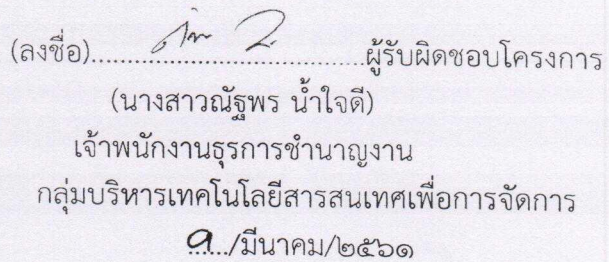 (ลงชื่อ)..............................................ผู้รับผิดชอบโครงการ
(นางสาวณัฐพร น้ำใจดี)
เจ้าพนักงานธุรการชำนาญงาน
กลุ่มบริหารเทคโนโลยีสารสนเทศเพื่อการจัดการ
๑....../มีนาคม/๒๕๖๑